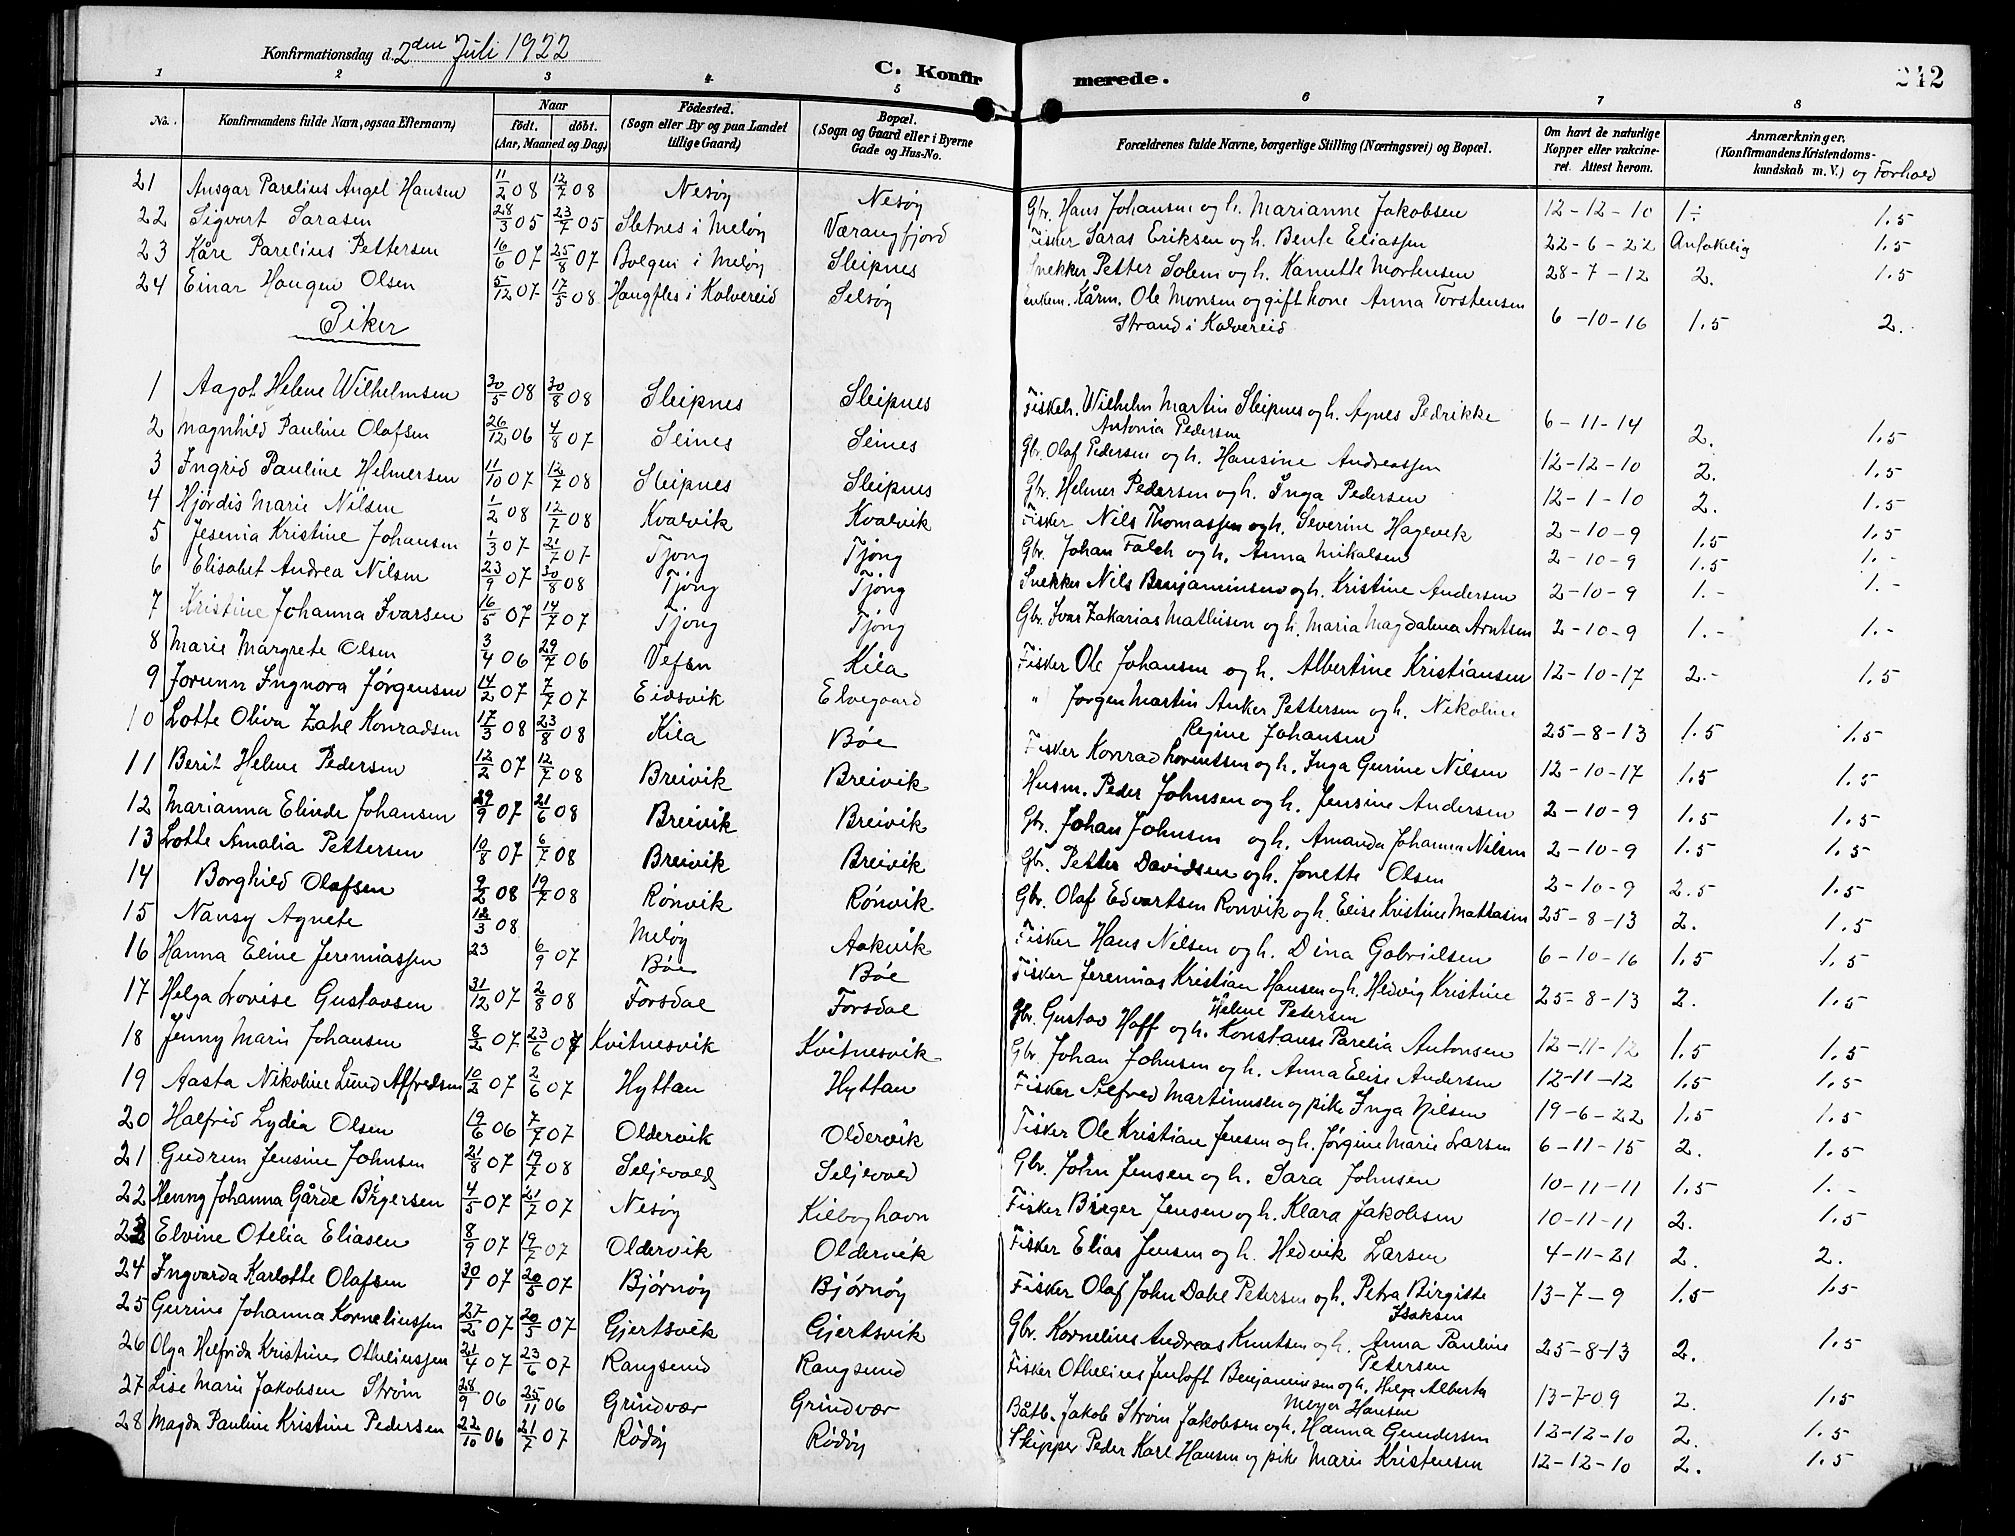 Konfirmationsdag d. 2den Juli 1922
C. Konfir merede. 242
1 2 3 4 5 6 7 8
No. Konfirmandens fulde Navn, ogsaa Efternavn) Naar født. døbt. (Aar, Maaned og Dag) Födested. (Sogn eller By og paa Landet tillige Gaard) Bopæl. (Sogn og Gaard eller i Byerne Gade og Hus-No. Forældrenes fulde Navne, borgerlige Stilling (Næringsvei) og Bopæl. Om havt de naturlige Kopper eller vakcineret. Attest herom. Anmærkninger. (Konfirmandens Kristendomskundskab m. V.) og Forhold
21 Ansgar Parelius Angel Hansen 11/2 08 12/7 08 Nesøy Nesøy Gbr. Hans Johansen og h. Marianne Jakobsen 12-12-10 1÷ 1.5
22 Sigvart Sarasen 28/3 05 23/7 05 Sletnes i Meløy Værangfjord Fisker Saras Eriksen og h. Bente Eliassen 22-6-22 Antakelig 1.5
23 Kåre Parelius Pettersen 16/6 07 25/8 07 Bolgen i Meløy Sleipnes Snekker Petter Solem og h. Kanutte Mortensen 28-7-12 2. 1.5
24 Einar Haugen Olsen 5/12 07 17/5 08 Haugfles i Kolvereid Selsøy Enkem. Kårm. Ole Monsen og gift kone Anna Torstensen
Strand i Kolvereid 6-10-16 1.5 2.
Piker
1 Aagot Helene Wilhelmsen 30/5 08 30/8 08 Sleipnes Sleipnes Fiskeh. Wilhelm Martin Sleipnes og h. Agnes Pedrikke
Antonia Pedersen 6-11-14 2. 1.5
2 Magnhild Pauline Olafsen 26/12 06 4/8 07 Seines Seines Gbr. Olaf Pedersen og h. Hansine Andreassen 12-12-10 2. 1.5
3 Ingrid Pauline Helmersen 11/10 07 12/7 08 Sleipnes Sleipnes Gbr. Helmer Pedersen og h. Inga Pedersen 12-1-10 2. 1.5
4 Hjørdis Marie Nilsen 1/2 08 12/7 08 Kvalvik Kvalvik Fisker Nils Thomassen og h. Severine Hagevik 2-10-9 1.5 1.5
5 Jesenia Kristine Johansen 1/3 07 21/7 07 Tjong Tjong Gbr. Johan Falch og h. Anna Mikalsen 2-10-9 1.5 1.-
6 Elisabet Andrea Nilsen 23/9 07 30/8 08 Tjong Tjong Snekker Nils Benjaminsen og h. Kristine Andersen 2-10-9 1.- 1.-
7 Kristine Johanna Ivarsen 16/5 07 14/7 07 Tjong Tjong Gbr. Ivar Zakarias Mathisen og h. Maria Magdalena Arntsen 2-10-9 1.- 1.-
8 Marie Margrete Olsen 3/4 06 29/7 06 Vefsn Kila Fisker Ole Johansen og h. Albertine Kristiansen 12-10-17 2.- 1.5
9 Jorunn Ingnora Jørgensen 14/2 07 7/7 07 Eidsvik Elvegaard " Jørgen Martin Anker Pettersen og h. Nikoline
Regine Johansen 25-8-13 1.5 1.5
10 Lotte Oliva Zahl Konradsen 17/3 08 23/8 08 Kila Bøe Fisker Konrad Lorentsen og h. Inga Gurine Nilsen 12-10-17 1.5 1.5
11 Berit Helene Pedersen 12/2 07 12/7 08 Breivik Breivik Husm. Peder Johnsen og h. Jensine Andersen 2-10-9 1.5 1.5
12 Marianna Elinde Johansen 29/9 07 21/6 08 Breivik Breivik Gbr. Johan Johnsen og h. Amanda Johanna Nilsen 2-10-9 1.5 1.5
13 Lotte Amalia Pettersen 10/8 07 6/7 08 Breivik Breivik Gbr. Petter Davidsen og h. Jonette Olsen 2-10-9 2.5 1.5
14 Borghild Olafsen 9/2 08 19/7 08 Rønvik Rønvik Gbr. Olaf Edvartsen Rønvik og h. Elise Kristine Mattasen 25-8-13 2. 1.5
15 Nansy Agnete 12/3 08 Meløy Aakvik Fisker Hans Nilsen og h. Dina Gabrielsen 6-10-16 1.5 1.5
16 Hanna Eline Jeremiassen 23 6/9 07 Bøe Bøe Fisker Jeremias Kristian Hansen og h. Hedvig Kristine
Helene Petersen 25-8-13 2. 1.5
17 Helga Lovise Gustavsen 31/12 07 2/8 08 Forsdal Forsdal Gbr. Gustav Hoff og h. Konstanse Parelia Antonsen 12-11-12 1.5 1.5
18 Jenny Marie Johansen 8/2 07 23/6 07 Kvitnesvik Kvitnesvik Gbr. Johan Johnsen og h. Anna Elise Andersen 12-11-12 1.5 1.5
19 Aasta Nikoline Lund Alfredsen 10/2 07 2/6 07 Hyttan Hyttan Fisker Alfred Martinusen og pike Inga Nilsen 19-6-22 1.5 1.5
20 Halfrid Lydia Olsen 19/6 06 7/7 07 Oldervik Oldervik Fisker Ole Kristian Jensen og h. Jørgine Marie Larsen 6-11-15 2. 1.5
21 Gudrun Jensine Johnsen 21/8 07 19/7 08 Seljevold Seljevold Gbr. John Jensen og h. Sara Johnsen 10-11-11 1.5 1.-
22 Henny Johanna Gårde Birgersen 4/5 07 21/7 07 Nesøy Kilboghavn Fisker Birger Jensen og h. Klara Jakobsen 10-11-11 2. 1.5
23 Elvine Otelia Eliasen 8/9 07 19/7 07 Oldervik Oldervik Fisker Elias Jensen og h. Hedvik Larsen 4-11-21 2. 2.
24 Ingvarda Karlotte Olafsen 30/1 07 20/5 07 Bjørnøy Bjørnøy Fisker Olaf John Dahl Petersen og h. Petra Birgitte
Isaksen 13-7-9 1.5 1.5
25 Gurine Johanna Korneliussen 27/2 07 20/5 07 Gjertsvik Gjertsvik Gbr. Kornelius Andreas Knutsen og h. Anna Pauline
Petersen 25-8-13 2. 1.5
26 Olga Helfrida Kristine Otheliussen 21/4 07 23/6 07 Rangsund Rangsund Fisker Othelius Jentoft Benjaminsen og h. Helga Alberta
Meyer Hansen 13-7-09 2. 1.5
27 Lise Marie Jakobsen Strøm 28/9 06 25/11 06 Grindvær Grindvær Båtb. Jakob Strøm Jakobsen og h. Hanna Gundersen 12-12-10 2. 1.5
28 Magda Pauline Kristine Pedersen 22/10 06 21/7 07 Rødøy Rødøy Skipper Peder Karl Hansen og pike Marie Kristensen 12-12-10 2. 1.5